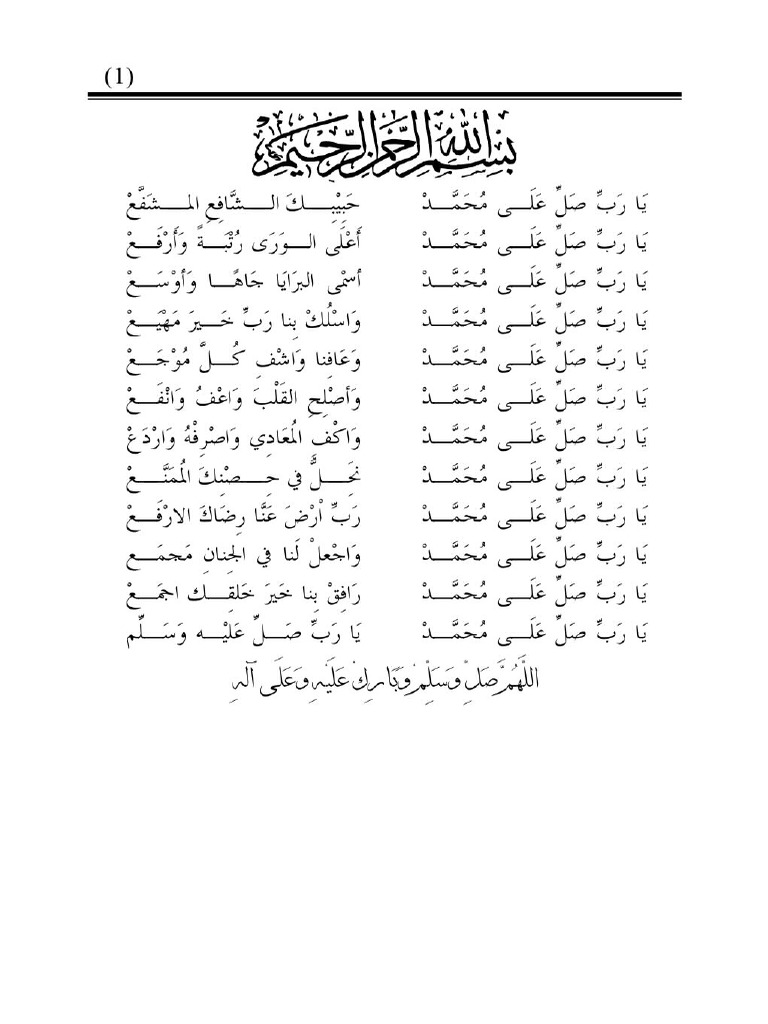 (1)
بِسْمِ اللهِ الرَّحْمنِ الرَّحِيْمِ
يَا رَبِّ صَلِّ عَلَى مُحَمَّدْ حَبِيْبِكَ الشَّافِعِ المشَفَّعْ
يَا رَبِّ صَلِّ عَلَى مُحَمَّدْ أَعْلَى الوَرَى رُتْبَةً وَأَرْفَعْ
يَا رَبِّ صَلِّ عَلَى مُحَمَّدْ أسْمٰى البرَايَا جَاهًا وَأوْسَعْ
يَا رَبِّ صَلِّ عَلَى مُحَمَّدْ وَاسْلُكْ بِنا رَبِّ خَيرَ مَهْيَعْ
يَا رَبِّ صَلِّ عَلَى مُحَمَّدْ وَعَافِنا وَاشْفِ كُلَّ مُوْجَعْ
يَا رَبِّ صَلِّ عَلَى مُحَمَّدْ وَأصْلِحِ القَلْبَ وَاعْفُ وَانْفَعْ
يَا رَبِّ صَلِّ عَلَى مُحَمَّدْ وَاكْفِ المُعَادِي وَاصْرِفْهُ وَارْدَعْ
يَا رَبِّ صَلِّ عَلَى مُحَمَّدْ نَحِلُّ في حِصْنِكَ المُمَنَّعْ
يَا رَبِّ صَلِّ عَلَى مُحَمَّدْ رَبِّ ارْضَ عَنَّا رِضَاكَ الارْفَعْ
يَا رَبِّ صَلِّ عَلَى مُحَمَّدْ وَاجْعَلْ لَنا في الجِنانِ مَجمَعْ
يَا رَبِّ صَلِّ عَلَى مُحَمَّدْ رَافِقْ بِنا خَيرَ خَلقِك اجمَعْ
يَا رَبِّ صَلِّ عَلَى مُحَمَّدْ يَا رَبِّ صَلِّ عَلَيْه وَسَلِّم
اللَّهُمَّ صَلِّ وَسَلِّمْ وَبَارِكْ عَلَيْهِ وَعَلَى آلِهِ